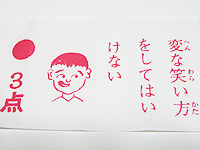 変な笑い方
をしてはい
けない
へん
わら
かた
3点